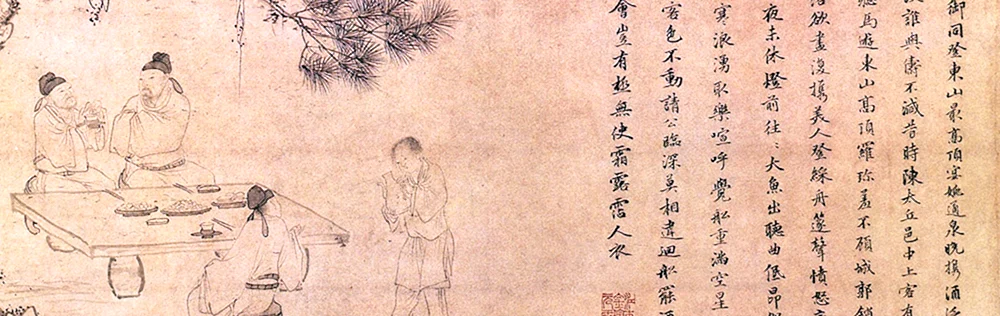 御同登東山最高頂宴姚通泉晚携酒泛
誰與儔不減昔時陳太丘邑中上客有
驄馬遊東山高頂羅珍羞不顧城郭銷
落欲盡復携美人登綵舟篴聲憤怨
夜未休燈前往〻大魚出聽曲低昂
寒浪湧取樂喧呼覺船重滿空星
客色不動請公臨深莫相違迴船罷酒
會豈有極無使霜露霑人衣